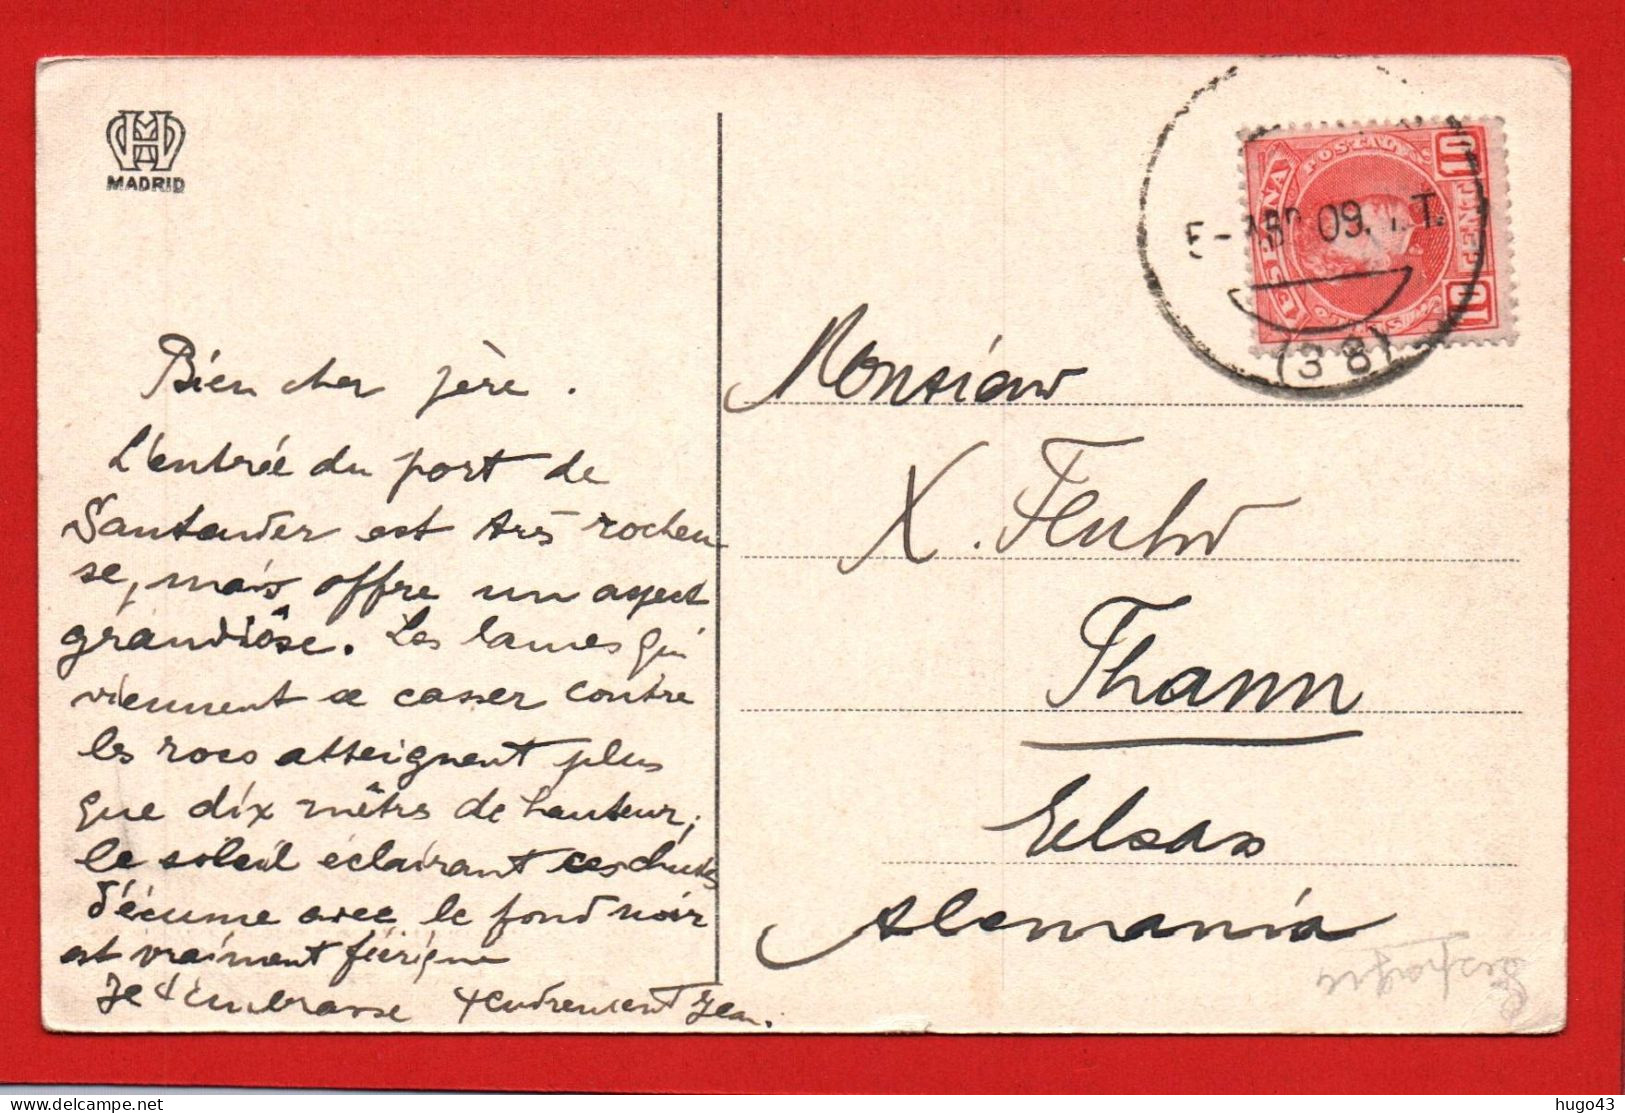 MADRID
Bien cher père.
L'entrée du port de
Santander est très rocheu
se, mais offre un aspect
grandiôse. Les lames qui
viennent se casser contre
les rocs atteignent plus
que dix mètrs de hauteur;
le soleil éclairant ces chutes
d'écume avec le fond noir
est vraiment féérique
Je t'embrasse tendrement Jean.
ESPAÑA
POSTAL
10 CENT. 10
5-ABR 09. T.
(38)
Monsieur
X.
Thann
Elsass
Alemania
Espagne
hugo43
delcampe.net